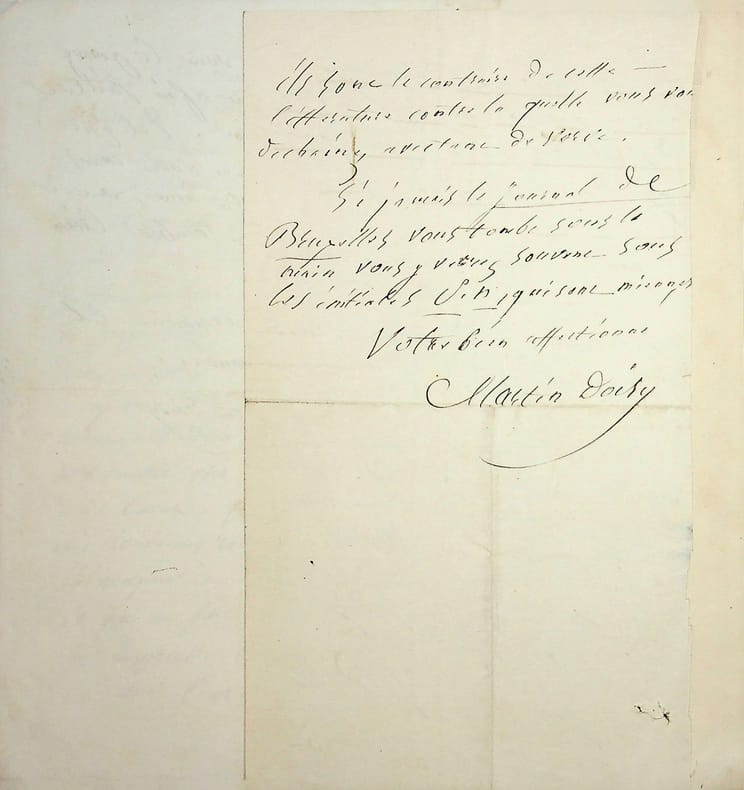 ils sont le contraire de cette
littérature contre la quelle vous vou
dechainez avec tant de verve.
Si jamais le Journal de
Bruxelles vous tombe sous la
main vous y verrez souvent sous
les initiales qui sont miennes
Votre bien affectionné
Martin Doisy